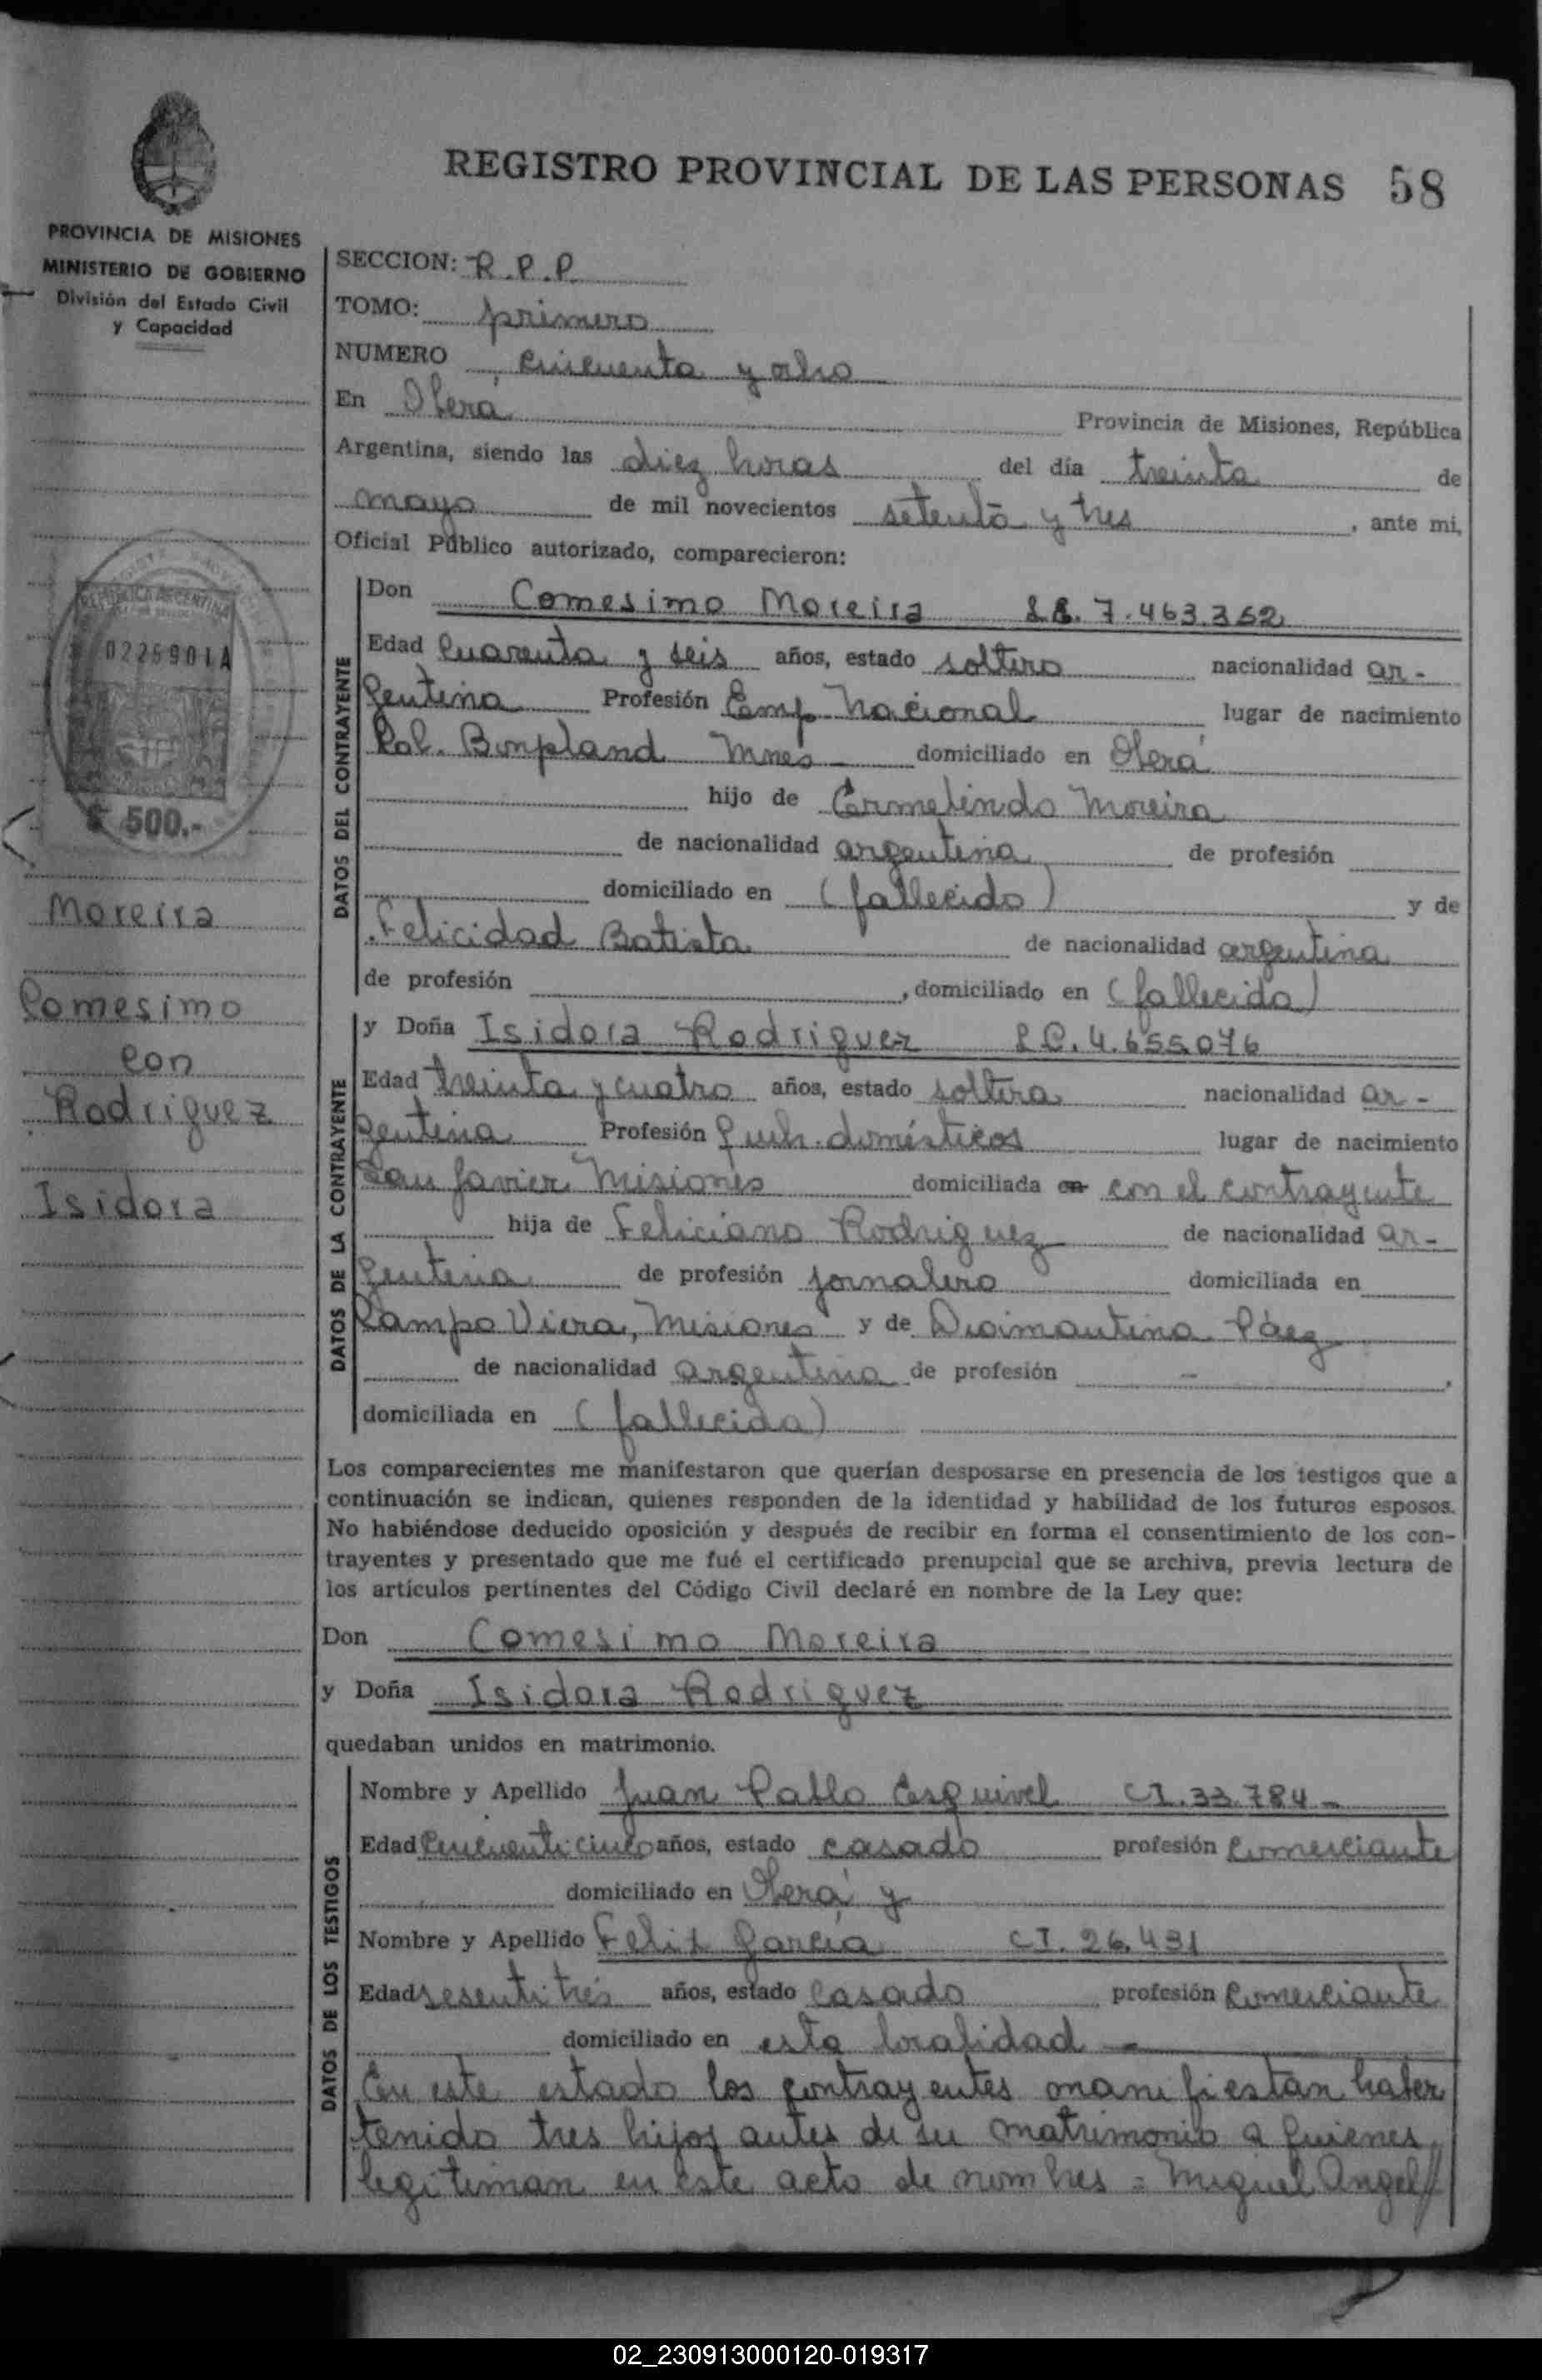 REGISTRO PROVINCIAL DE LAS PERSONAS 58
PROVINCIA DE MISIONES
MINISTERIO DE GOBIERNO
División del Estado Civil
y Capacidad
SECCION: R.P.P.
TOMO: primero
NUMERO cincuenta y ocho
En Oberá Provincia de Misiones, República
Argentina, siendo las diez horas del día treinta de
mayo de mil novecientos setenta y tres, ante mi,
Oficial Público autorizado, comparecieron:
REPUBLICA ARGENTINA
0226901A
$ 500.-
Moreira
Comesimo
con
Rodriguez
Isidora
DATOS DEL CONTRAYENTE
Don Comesimo Moreira 7.463.352
Edad Cuarenta y seis años, estado soltero nacionalidad ar-
gentina Profesión Emp. Nacional lugar de nacimiento
Col. Bonpland Mnes domiciliado en Oberá
hijo de Ermelindo Moreira
de nacionalidad argentina de profesión
domiciliado en (fallecido) y de
Felicidad Batista de nacionalidad argentina
de profesión , domiciliado en (fallecida)
DATOS DE LA CONTRAYENTE
y Doña Isidora Rodriguez L.C. 4.655.076
Edad treinta y cuatro años, estado soltera nacionalidad ar-
gentina Profesión Queh. domésticos lugar de nacimiento
San Javier Misiones domiciliada en con el contrayente
hija de Feliciano Rodriguez de nacionalidad ar-
gentina de profesión jornalero domiciliada en
Campo Viera, Misiones y de Diamantina Páez
de nacionalidad argentina de profesión -,
domiciliada en (fallecida)
Los comparecientes me manifestaron que querían desposarse en presencia de los testigos que a
continuación se indican, quienes responden de la identidad y habilidad de los futuros esposos.
No habiéndose deducido oposición y después de recibir en forma el consentimiento de los con-
trayentes y presentado que me fué el certificado prenupcial que se archiva, previa lectura de
los artículos pertinentes del Código Civil declaré en nombre de la Ley que:
Don Comesimo Moreira
y Doña Isidora Rodriguez
quedaban unidos en matrimonio.
DATOS DE LOS TESTIGOS
Nombre y Apellido Juan Pablo Esquivel CI. 33.784-
Edad Cincuenticinco años, estado casado profesión Comerciante
domiciliado en Oberá y
Nombre y Apellido Felix García CI. 26.431
Edad sesentitrés años, estado Casado profesión Comerciante
domiciliado en esta localidad -
En este estado los contrayentes manifiestan haber
tenido tres hijos antes de su matrimonio a quienes
legitiman en este acto de nombres = Miguel Angel//
02_230913000120-019317